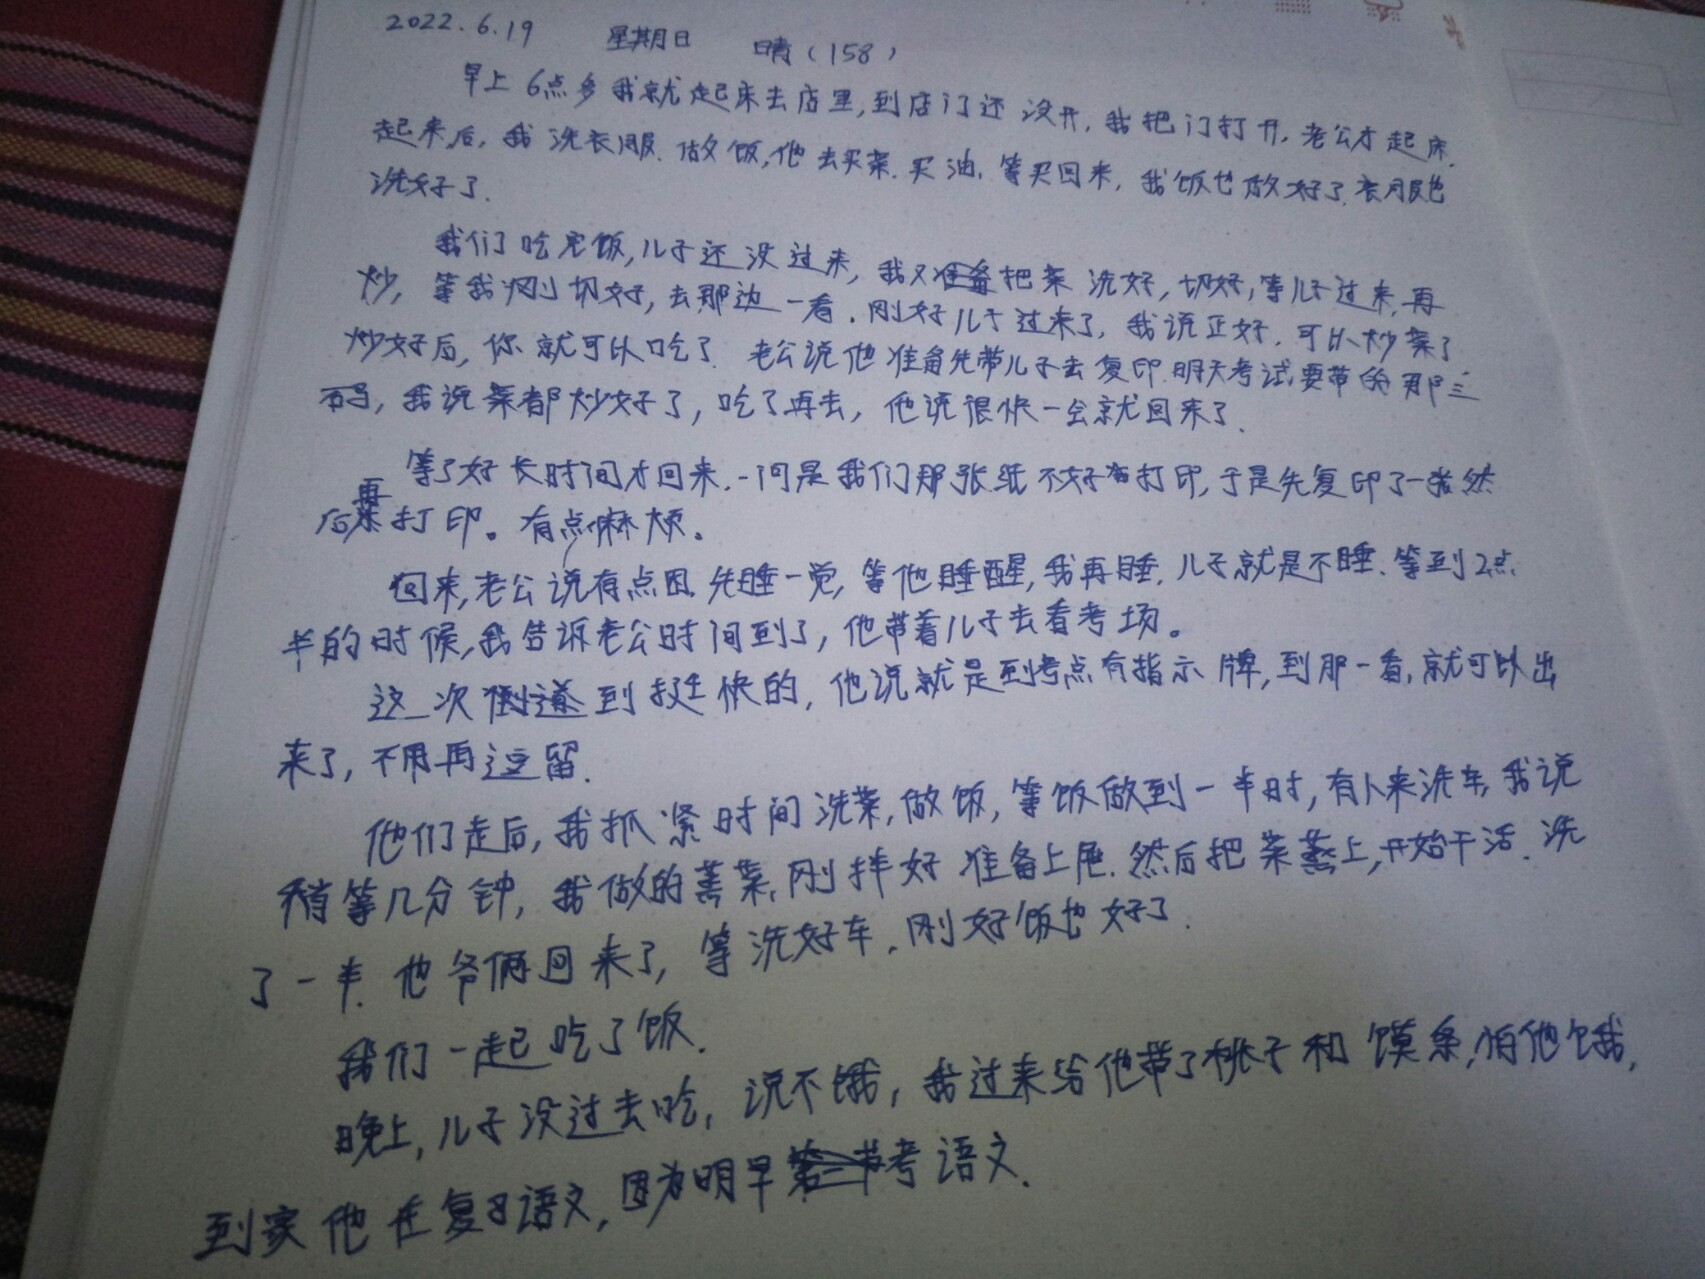 2022.6.19 星期日 晴(158)
早上6点多我就起床去店里,到店门还没开,我把门打开,老公才起床.
起来后,我洗衣服.做饭,他去买菜.买油,等买回来,我饭也做好了.衣服也
洗好了.
我们吃完饭,儿子还没过来,我又准备把菜洗好,切好,等儿子过来,再
炒,等我刚切好,去那边一看.刚好儿子过来了,我说正好,可以炒菜了
炒好后,你就可以吃了.老公说他准备先带儿子去复印明天考试要带的那三
码,我说菜都炒好了,吃了再去,他说很快一会就回来了.
等了好长时间才回来.一问是我们那张纸不好打印,于是先复印了一张然
后再打印。有点麻烦。
回来,老公说有点困.先睡一觉,等他睡醒,我再睡.儿子就是不睡.等到2点
半的时候,我告诉老公时间到了,他带着儿子去看考场。
这次倒到挺快的,他说就是到考点有指示牌,到那一看,就可以出
来了,不用再逗留.
他们走后,我抓紧时间洗菜,做饭,等饭做到一半时,有人来洗车,我说
稍等几分钟,我做的蒸菜,刚拌好准备上屉.然后把菜蒸上,开始干活.洗
了一半.他爷俩回来了,等洗好车.刚好饭也好了.
我们一起吃了饭.
晚上,儿子没过去吃,说不饿,我过来给他带了桃子和馍条,怕他饿,
到家他在复习语文,因为明早考语文.